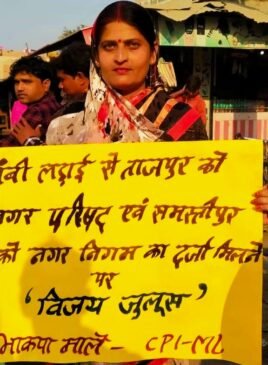 लंबी लड़ाई से ताजपुर को
नगर परिषद् एवं समस्तीपुर
को नगर निगम का दर्जा मिलने
पर
'विजय जुलूस'
भाकपा माले - CPI-ML